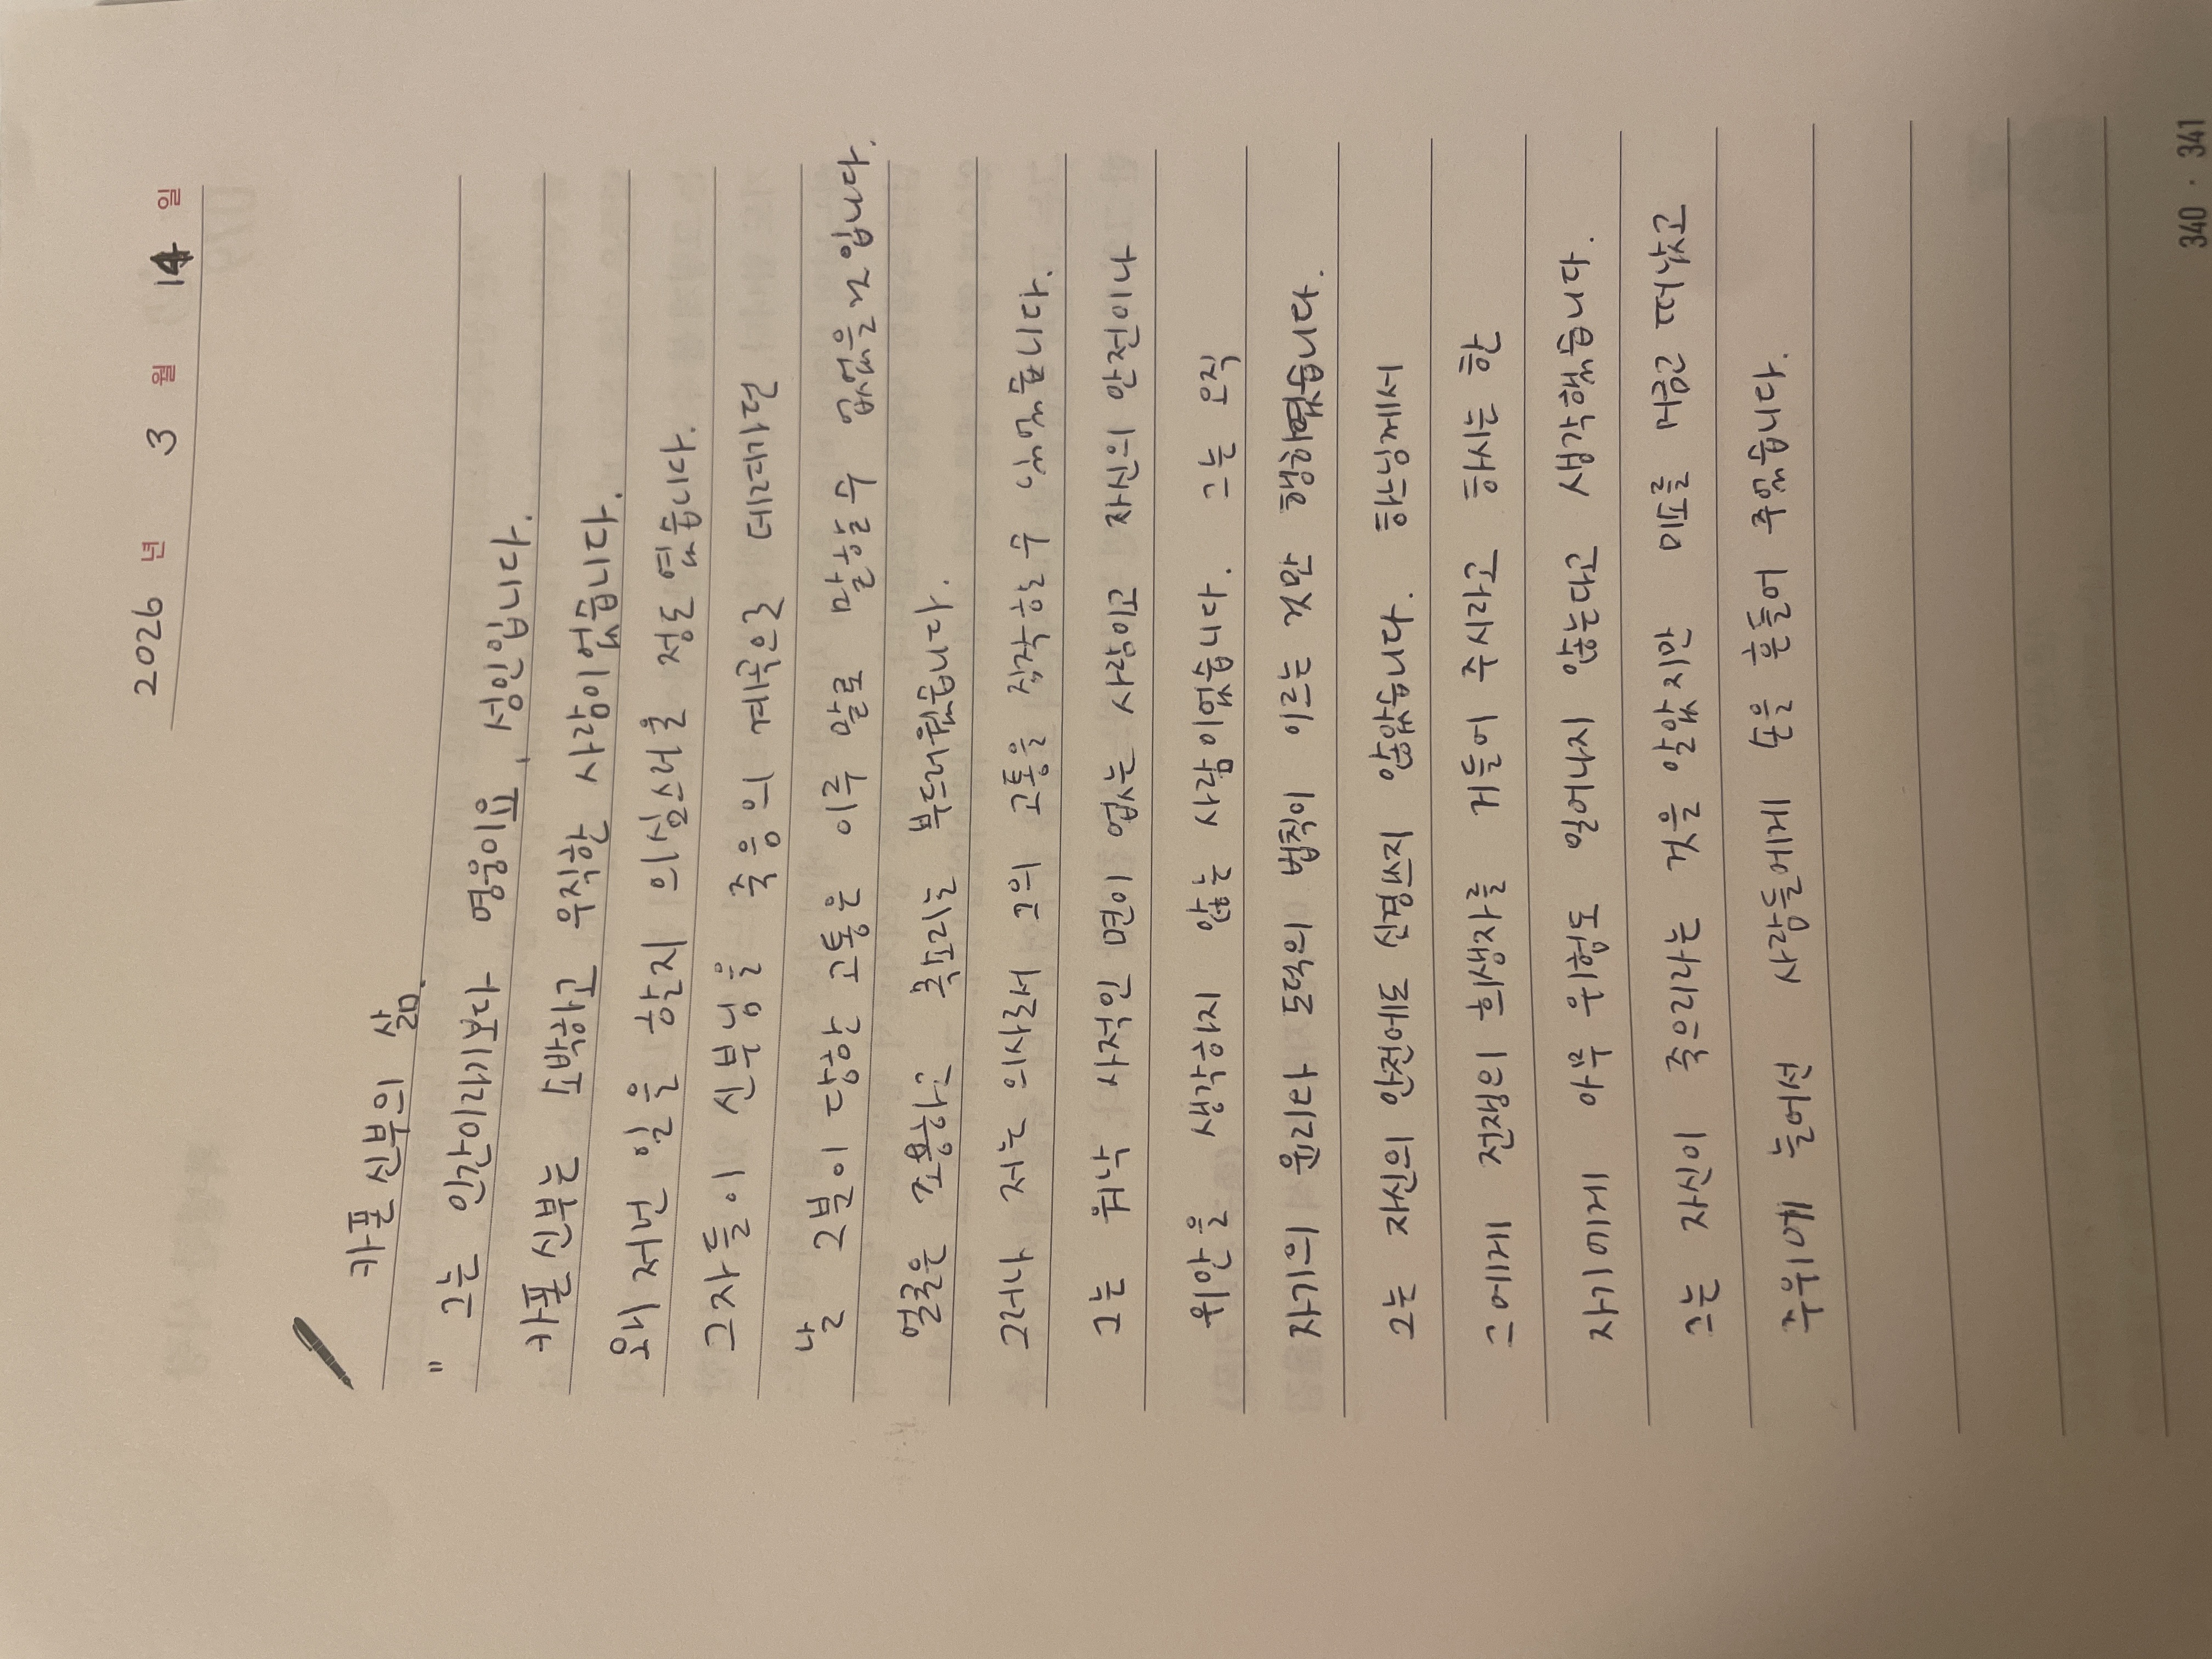 2026 년 3 월 14 일
카폰 신부의 삶.
" 그는 인간이라기보다 영웅이요, 성인입니다.
카폰 신부는 소박하고 우직한 사람이었습니다.
왜 저런 일을 할지 의심스러울 정도였습니다.
그자들이 신부님을 죽음의 계곡으로 데려가던
날 그분이 당한 고통은 이루 말로 말할 수 없었을 것 입니다.
얼굴은 조용하고 목소리는 부드러웠습니다.
그러나 저는 의사로서 그의 고통을 짐작할 수 있었습니다.
그는 워낙 사적인 면이 없는 사람이고 자신의 안전이나
위안을 생각하지 않는 사람이었습니다. 그는 오직
자기의 윤리다 도덕의 법칙이 이르는 것만 행하였습니다.
그는 자신의 안전에도 신경쓰지 않았습니다. 하느님께서
그에게 전쟁의 희생자를 거들어 주시라고 하시는 한
자기에게 아무 위험도 일어나지 않는다고 생각했습니다.
그는 자신이 죽으리라는 것을 알았지만 미소를 머금고 떠났고
주위에 늘어선 사람들에게 손을 흔들어 주었습니다.
340 · 341